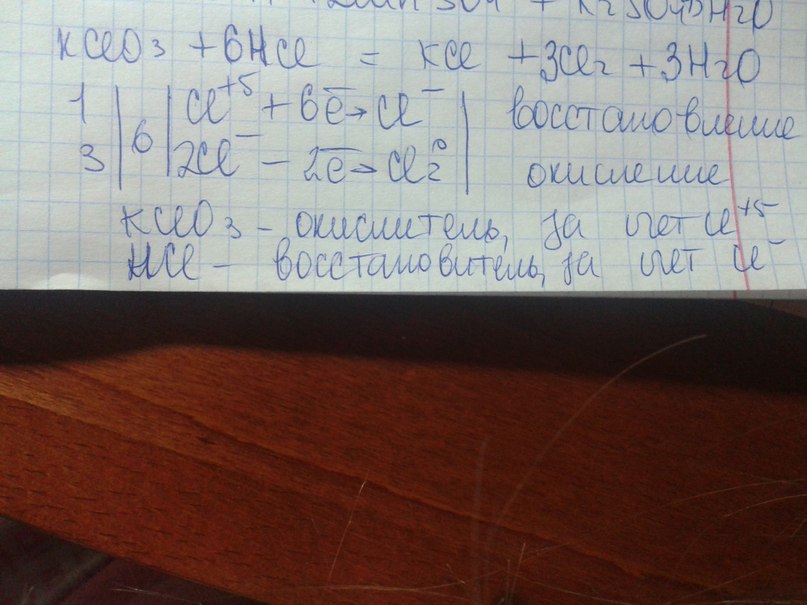 + K2SO4 + H2O
KClO3 + 6HCl = KCl + 3Cl2 + 3H2O
1 | 6 | Cl⁺⁵ + 6ē → Cl⁻ | восстановление
3 | 2Cl⁻ – 2ē → Cl2⁰ | окисление
KClO3 – окислитель, за счет Cl⁺⁵
HCl – восстановитель, за счет Cl⁻